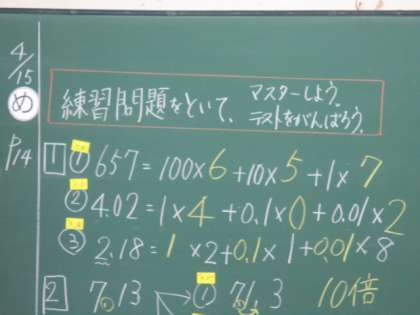 4/15
め 練習問題をといて、マスターしよう。
テストをがんばろう。
P14
1 ① 657=100×6+10×5+1×7
② 4.02=1×4+0.1×0+0.01×2
③ 2.18=1×2+0.1×1+0.01×8
2 7.13 ① 71.3 10倍